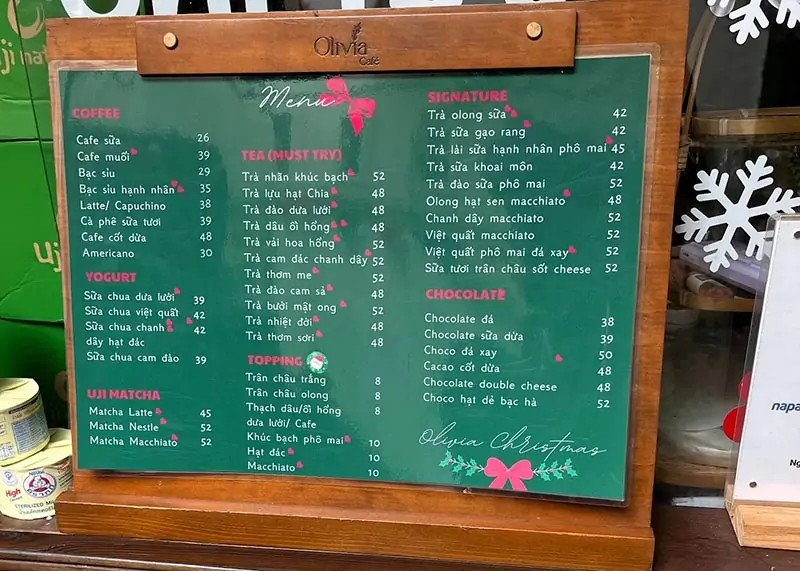 Olivia
Café
Menu
COFFEE
Cafe sữa 26
Cafe muối 39
Bạc sỉu 29
Bạc sỉu hạnh nhân 35
Latte/ Capuchino 38
Cà phê sữa tươi 39
Cafe cốt dừa 48
Americano 30
YOGURT
Sữa chua dưa lưới 39
Sữa chua việt quất 42
Sữa chua chanh 42
dây hạt đác
Sữa chua cam dào 39
UJI MATCHA
Matcha Latte 45
Matcha Nestle 52
Matcha Macchiato 52
TEA (MUST TRY)
Trà nhãn khúc bạch 52
Trà lựu hạt Chia 48
Trà đào dưa lưới 48
Trà dâu ổi hồng 48
Trà vải hoa hồng 52
Trà cam đác chanh dây 52
Trà thơm me 52
Trà đào cam sả 48
Trà bưởi mật ong 52
Trà nhiệt đới 48
Trà thơm sơri 48
TOPPING
Trân châu trắng 8
Trân châu olong 8
Thạch dâu/ổi hồng 8
dưa lưới/ Cafe
Khúc bạch phô mai 10
Hạt đác 10
Macchiato 10
SIGNATURE
Trà olong sữa 42
Trà sữa gạo rang 42
Trà lài sữa hạnh nhân phô mai 45
Trà sữa khoai môn 42
Trà đào sữa phô mai 52
Olong hạt sen macchiato 48
Chanh dây macchiato 52
Việt quất macchiato 52
Việt quất phô mai đá xay 52
Sữa tươi trân châu sốt cheese 52
CHOCOLATE
Chocolate đá 38
Chocolate sữa dừa 39
Choco đá xay 50
Cacao cốt dừa 48
Chocolate double cheese 48
Choco hạt dẻ bạc hà 52
Olivia Christmas
High
STERILIZED
napa